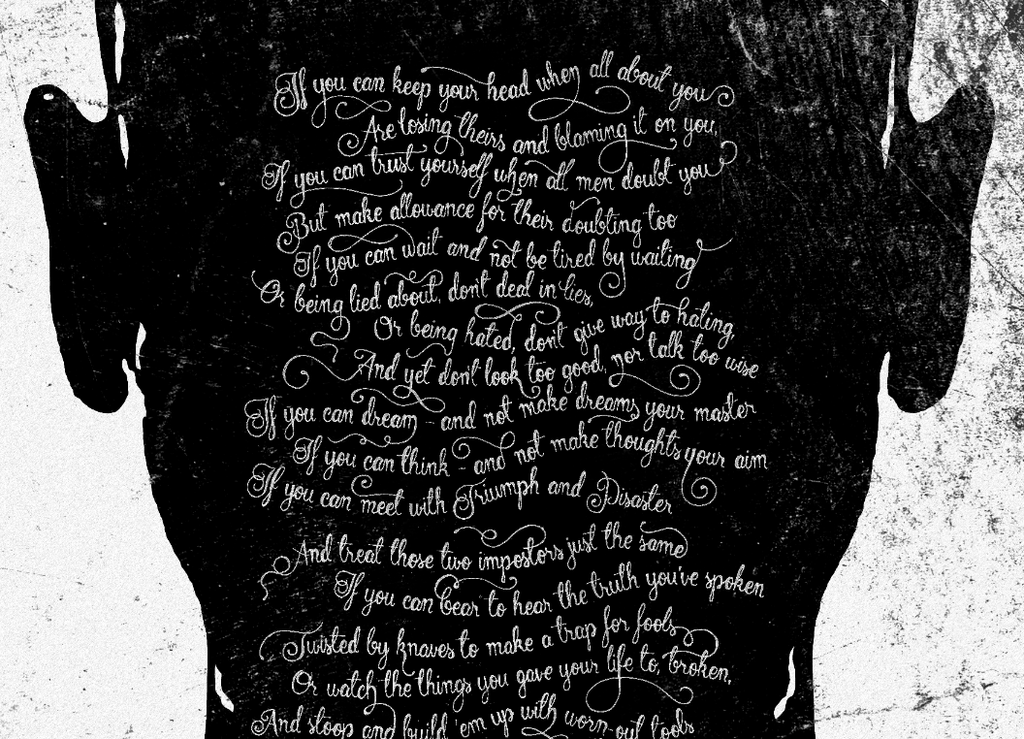 If you can keep your head when all about you
Are losing theirs and blaming it on you,
If you can trust yourself when all men doubt you
But make allowance for their doubting too
If you can wait and not be tired by waiting
Or being lied about, don't deal in lies,
Or being hated, don't give way to hating,
And yet don't look too good, nor talk too wise
If you can dream - and not make dreams your master
If you can think - and not make thoughts your aim
If you can meet with Triumph and Disaster
And treat those two impostors just the same
If you can bear to hear the truth you've spoken
Twisted by knaves to make a trap for fools
Or watch the things you gave your life to, broken,
And stoop and build 'em up with worn-out tools